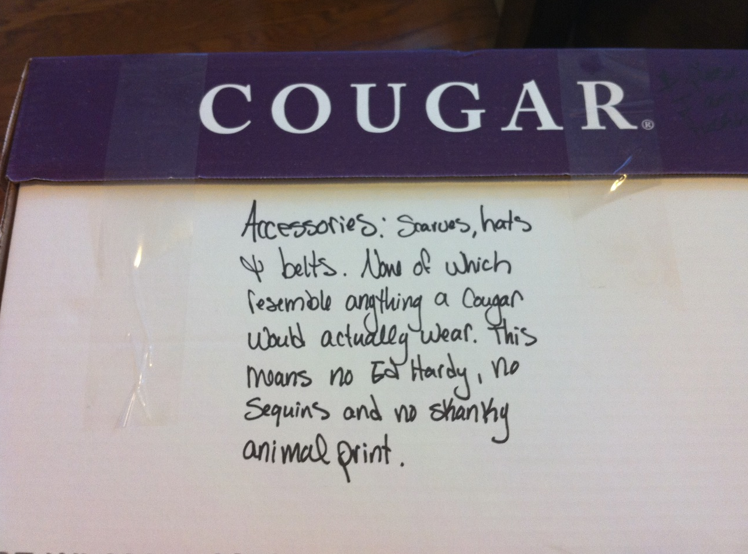 COUGAR®
Accessories: Scarves, hats
& belts. None of which
resemble angything a Cougar
would actually wear. This
means no Ed Hardy, no
Sequins and no skanky
animal print.